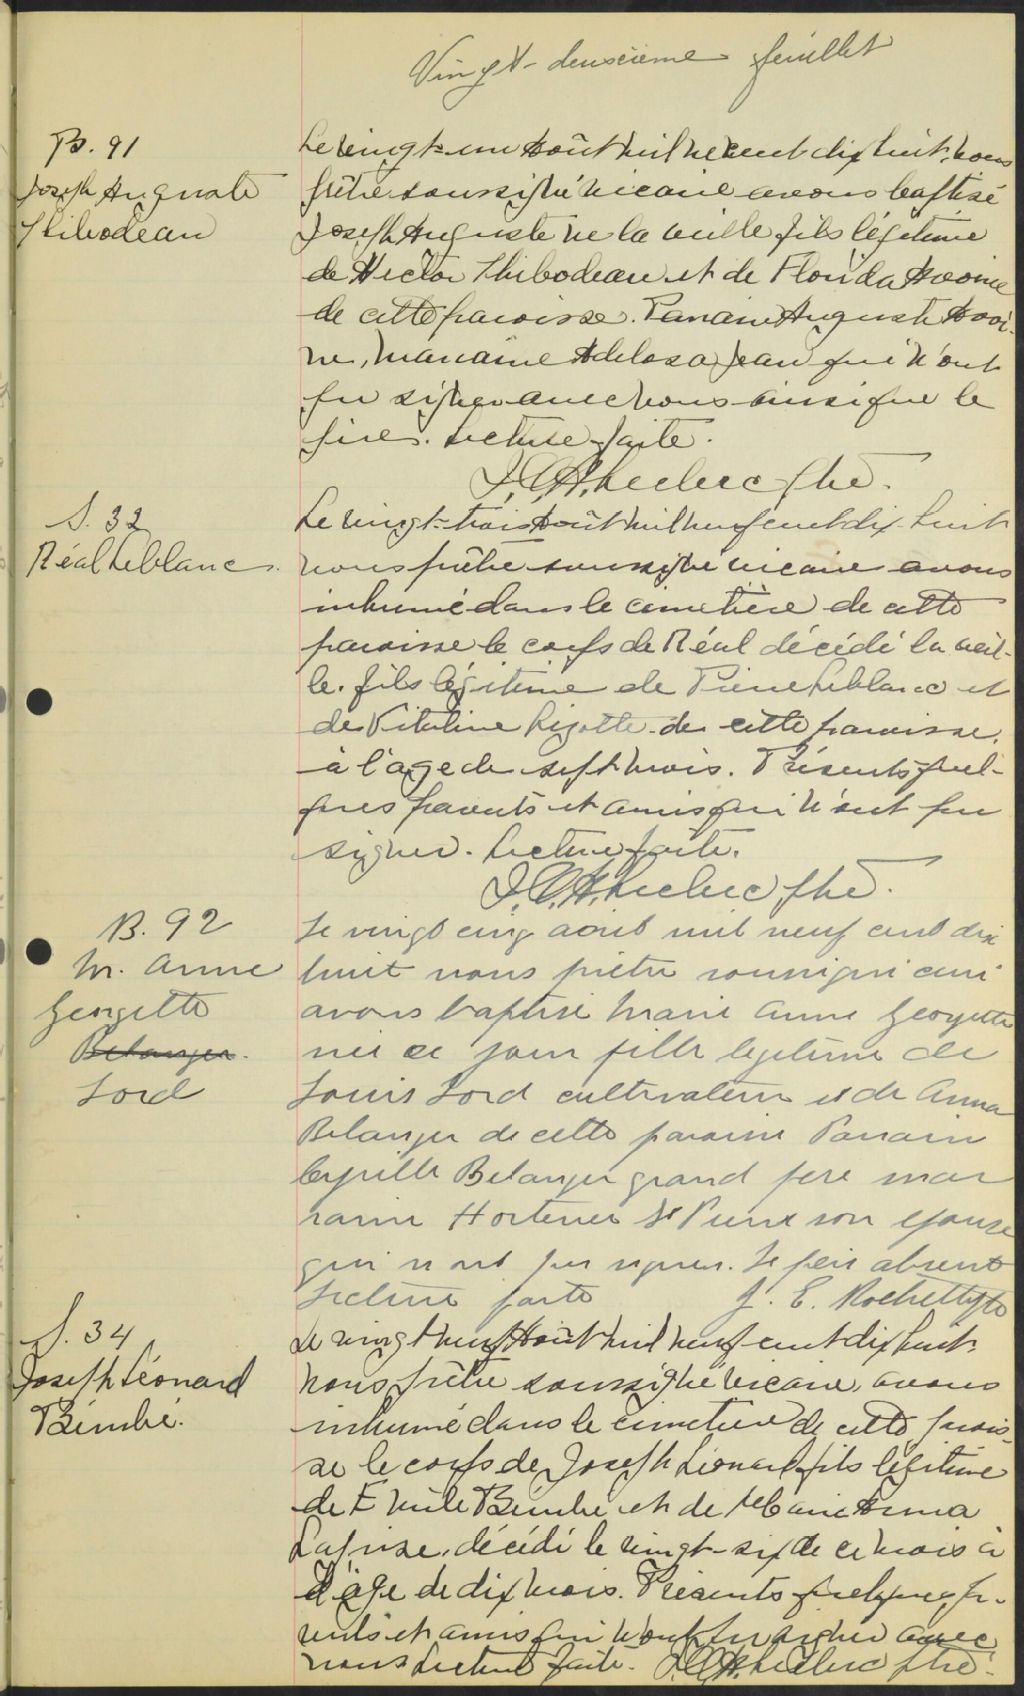 Vingt-deuxième feuillet
B. 91
Joseph Auguste
Thibodeau
Le vingt-un Août mil neuf cent dix huit, nous
prêtre soussigné vicaire avons baptisé
Joseph Auguste né la veille fils légitime
de Hector Thibodeau et de Florida Avoine
de cette paroisse. Parrain Auguste Avoi-
ne, marraine Adelosa Jean qui n'ont
pu signer avec nous ainsi que le
père. Lecture faite.
J.C.A. Leclerc ptre.
S. 32
Réal Leblanc.
Le vingt-trois Août mil neuf cent dix-huit
nous prêtre soussigné vicaire avons
inhumé dans le cimetière de cette
paroisse le corps de Réal décédé la veil-
le. fils légitime de Pierre Leblanc et
de Vitaline Lizotte de cette paroisse.
à l'age de sept mois. Présents quel-
ques parents et amis qui n'ont pu
signer. Lecture faite.
J.C.A. Leclerc ptre.
B. 92
M. Anne
Georgette
Belanger.
Lord
Le vingt cinq août mil neuf cent dix
huit nous prêtre soussigné curé
avons baptisé Marie Anne Georgette
née ce jour fille legitime de
Louis Lord cultivateur et de Anna
Belanger de cette paroisse Parrain
Cyrille Belanger grand père mar
raine Hortense St Pierre son epouse
qui n ont pu signer. Le père absent
Lecture faite J. E. Rochette ptr
S. 34
Joseph Léonard
Bimbé.
Le vingt neuf Août mil neuf cent dix huit.
nous prêtre soussigné vicaire, avons
inhumé dans le cimetière de cette parois-
se le corps de Joseph Léonard fils légitime
de Emile Bimbé et de Marie Anna
Laprise, décédé le vingt-six de ce mois à
l'âge de dix mois. Présents quelques pa-
rents et amis qui n'ont pu signer avec
nous Lecture faite. J.C.A. Leclerc ptre.